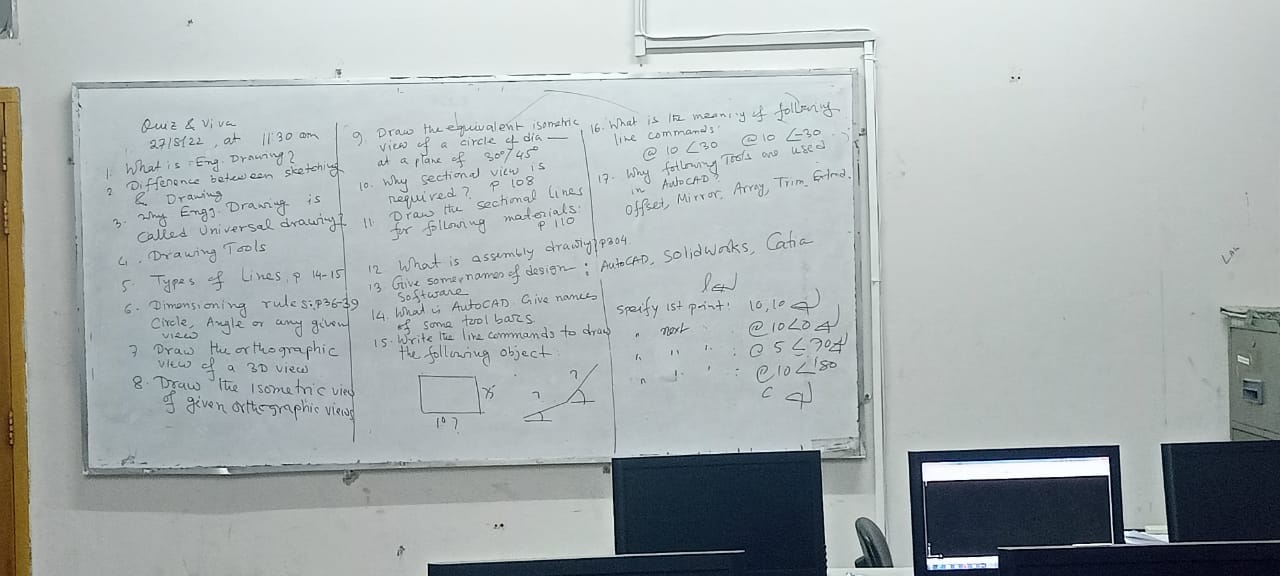 Quiz & Viva
27/8/22, at 11:30 am
1. What is Eng. Drawing?
2 Difference between sketching
& Drawing
3. Why Engg. Drawing is
Called Universal drawing?
4. Drawing Tools
5. Types of Lines, p 14-15
6. Dimensioning rules: p36-39
Circle, Angle or any given
view
7 Draw the orthographic
view of a 3D view
8. Draw the Isometric view
of given orthographic views
9 Draw the equivalent isometric
view of a circle of dia —
at a plane of 30°/45°
10. Why sectional view is
required? p 108
11. Draw the sectional lines
for following materials:
p 110
12 What is assembly drawing? p304
13 Give some names of design : AutoCAD, SolidWorks, Catia
Software
14. What is AutoCAD. Give names
of some tool bars
15. Write the line commands to draw
the following object:
10 ?
? ?
16. What is the meaning of following
line commands:
@ 10 <30 @ 10 <-30
17. Why following Tools are used
in AutoCAD?
Offset, Mirror, Array, Trim, Extend.
specify 1st point: 10,10
" next " : @ 10<0
" " " : @ 5 <90
" " " : @ 10 <180
C